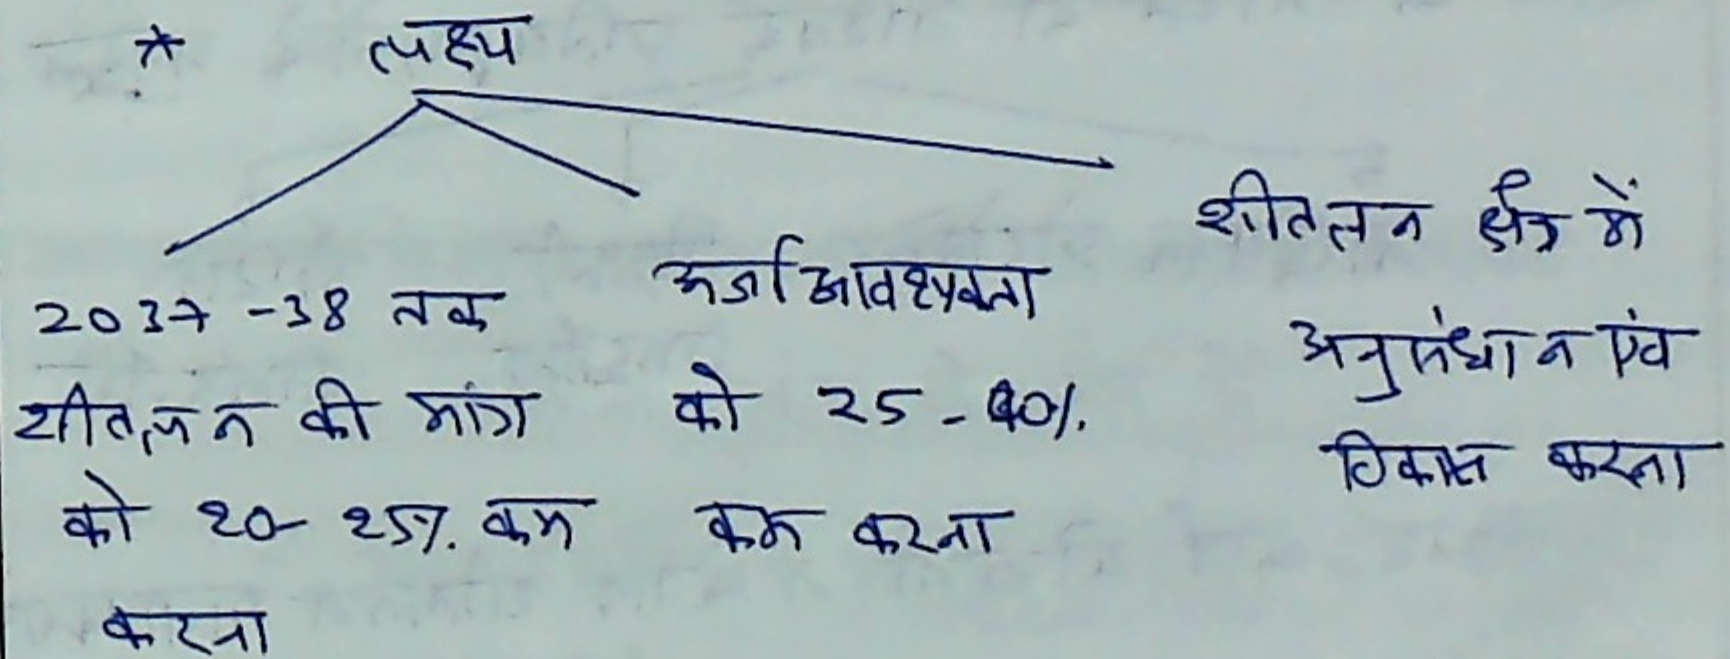 * लक्ष्य
2037-38 तक
शीतलन की मांग
को 20-25% कम
करना
ऊर्जा आवश्यकता
को 25-40%
कम करना
शीतलन क्षेत्र में
अनुसंधान एवं
विकास करना